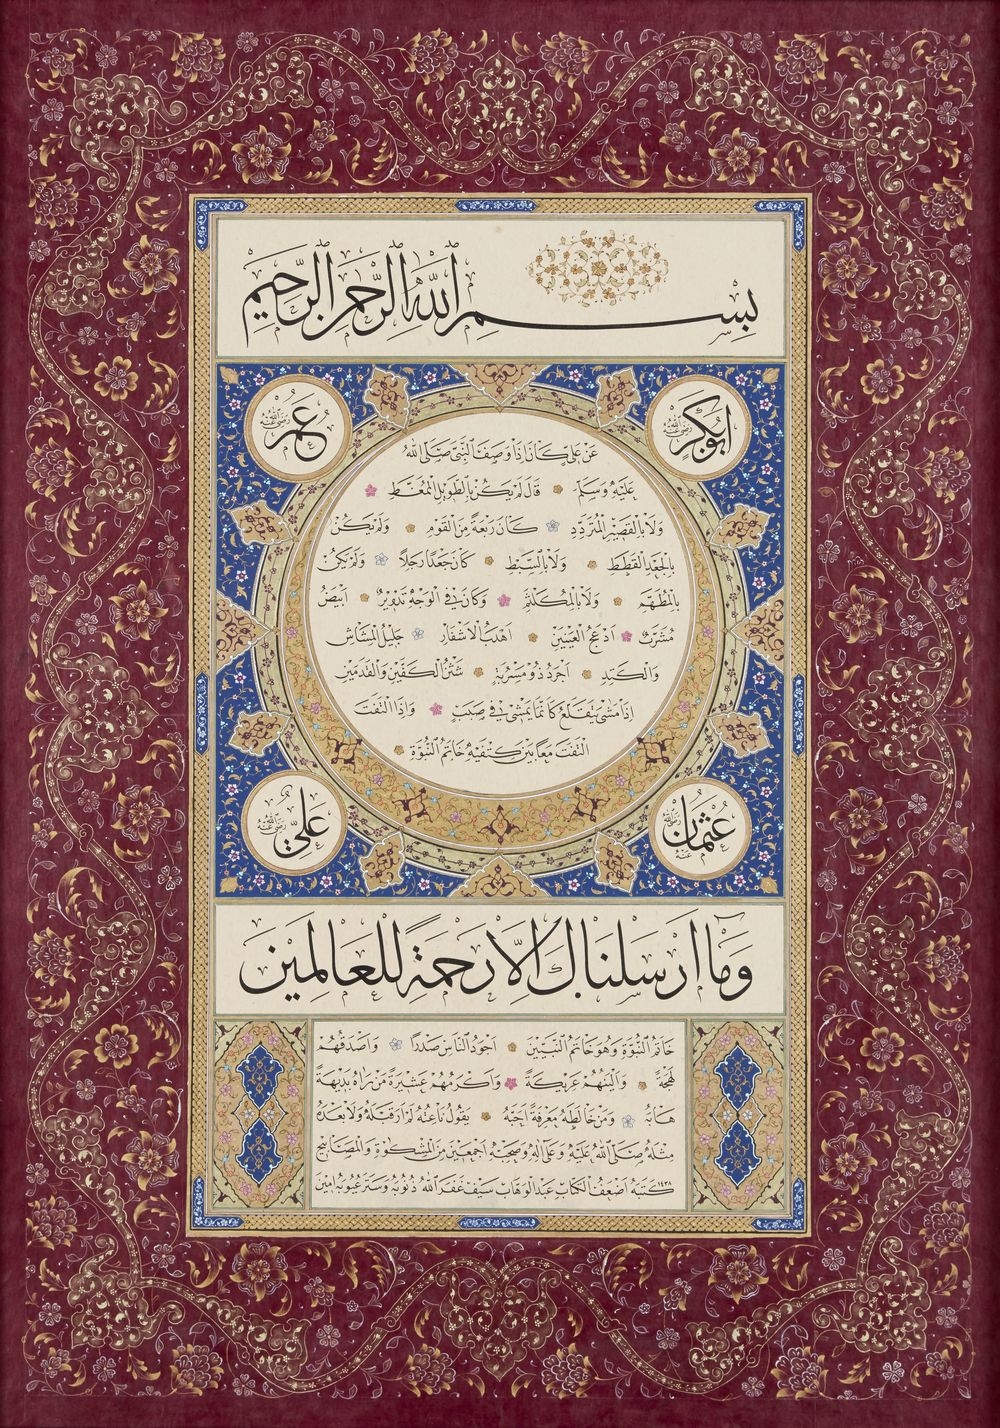 بسم الله الرحمن الرحيم
ابوبكر رضي الله عنه
عمر رضي الله عنه
عن علي كان اذا وصف النبي صلى الله
عليه وسلم قال لم يكن بالطويل الممغط
ولا بالقصير المتردد كان ربعة من القوم ولم يكن
بالجعد القطط ولا بالسبط كان جعدا رجلا ولم يكن
بالمطهم ولا بالمكلثم وكان في الوجه تدوير ابيض
مشرب ادعج العينين اهدب الاشفار جليل المشاش
والكتد اجرد ذو مسربة شثن الكفين والقدمين
اذا مشى يتقلع كانما يمشي في صبب واذا التفت
التفت معا بين كتفيه خاتم النبوة
عثمان رضي الله عنه
علي رضي الله عنه
وما ارسلناك الا رحمة للعالمين
خاتم النبوة وهو خاتم النبيين اجود الناس صدرا واصدقهم
لهجة والينهم عريكة واكرمهم عشيرة من راه بديهة
هابه ومن خالطه معرفة احبه يقول ناعته لم ار قبله ولا بعده
مثله صلى الله عليه وعلى اله وصحبه اجمعين من المشكوة والمصابيح
كتبه اضعف الكتاب عبدالوهاب سيف غفر الله ذنوبه وستر عيوبه امين ١٤٣٨